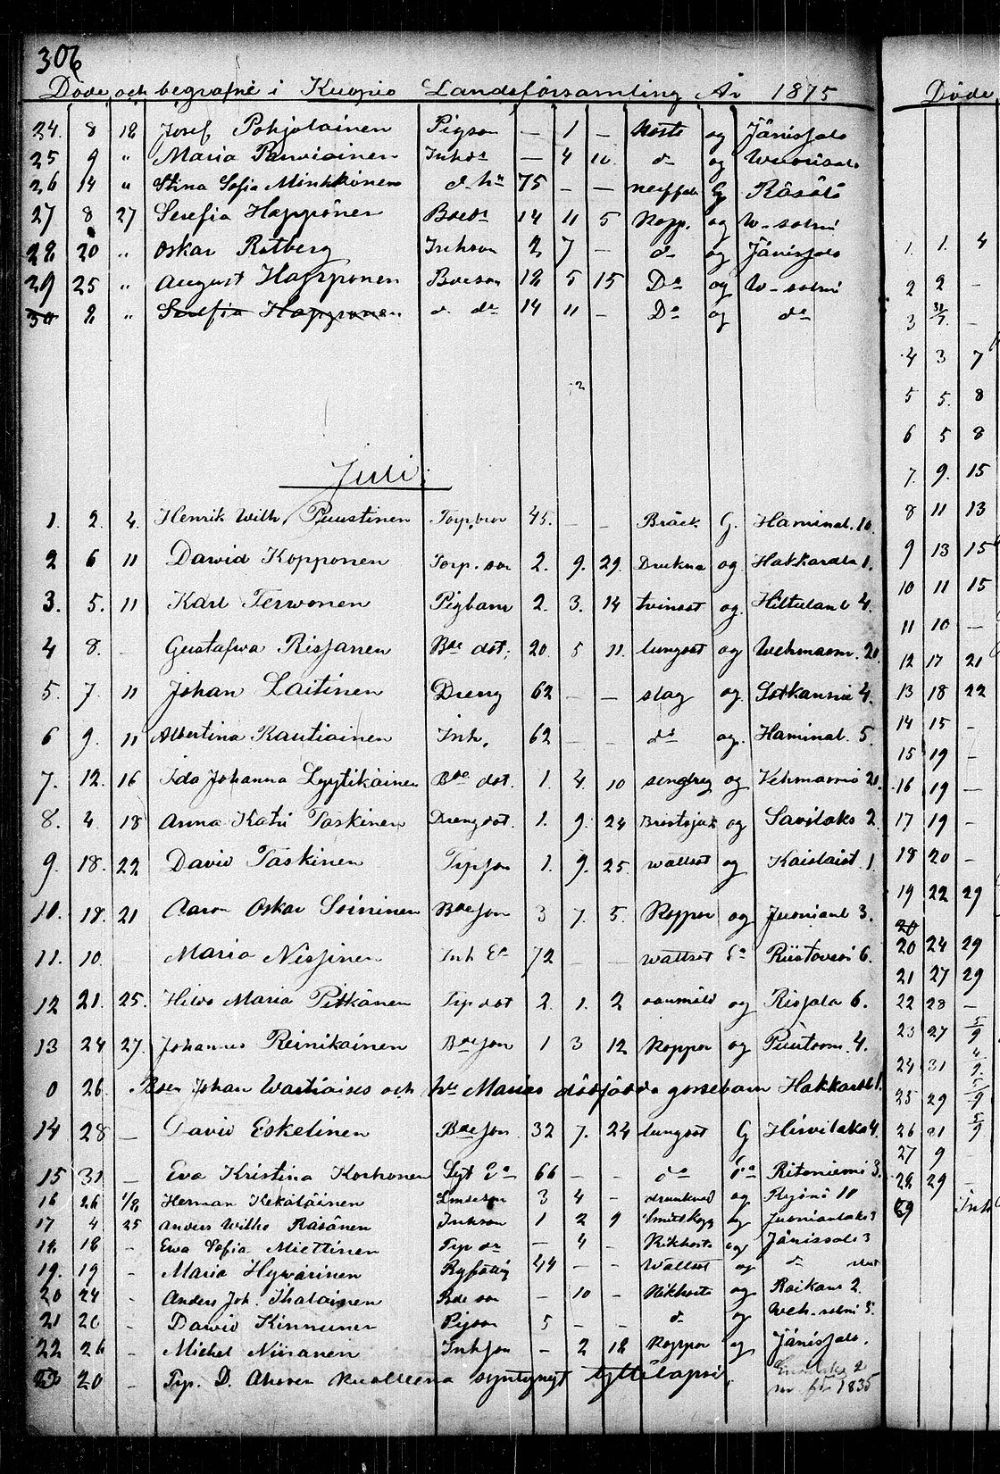 306
Döde och begrafne i Kuopio Landsförsamling År 1875
24. 8 18 Josef Pohjolainen Pigson — 1 — Hosta og Jänissalo
25 9 " Maria Parviainen Inhdr — 4 10. do og
26 14 " Stina Sofia Minkkinen d. hu 75 — — og Räsälä
27 8 27 Serefia Happonen Boedr 14 11 5 Kopp. og W-salmi
28 20 " Oskar Rotberg Inhson 2 7 — do og Jänissalo
29 25 " August Happonen Boeson 12 5 15 Do og W-salmi
30 8 " Serefia Happonen d. do 14 11 — Do og do
Juli.
1. 2. 4. Henrik Wilh. Puustinen 45. — — Bräck G. Haminal. 10
2 6 11 David Kopponen Torp. son 2. 9. 29. Drukna og Hakkarala 1.
3. 5. 11 Karl Terwonen Pigbarn 2. 3. 14 tvinsot og Hiltulanl 4.
4 8. — Gustafva Risjanen Boe dot. 20. 5 11. lungsot og Wehmasm. 20.
5. 7. 11 Johan Laitinen Dreng 62 — — slag og Sotkannie 4.
6 9. 11 Albertina Rautiainen Inh. 62 — — do og. Haminal. 5.
7. 12. 16 Ida Johanna Lyytikäinen Boe dot. 1. 4. 10 og Vehmasmä 21.
8. 4. 18 Anna Katri Taskinen Drengdot. 1. 9. 24 og Savilaks 2.
9. 18. 22 David Taskinen Trpson 1. 9. 25. wattsot og Kaislaist 1.
10. 18. 21 Aaron Oskar Soininen Boeson 3 7. 5. Koppor og Juonianl 3.
11. 10. Maria Nissinen Inh Ea 72 — — wattsot Ea Riistavesi 6.
12 21. 25. Hilda Maria Pitkänen Trp dot 2. 1. 2 og Risjala 6.
13 24 27. Johannes Reinikainen Boeson 1 3 12 Koppor og Puutosm. 4.
0 26. Boen Johan Wartiaises och hu Marias dödfödda gossebarn Hakkaral 1.
14 28 — David Eskelinen Boeson 32 7. 24 lungsot G Hirvilaks 4.
15 31 — Eva Kristina Korhonen Syt Ea 66 — — do Ea Ritoniemi 3.
16 26 1/8 Herman Kekäläinen 3 4 — drunknad og 10
17 4 25 Anders Wilho Räsänen Inhson 1 2 9 og Juonianlaks 3
18 18 — Ewa Sofia Miettinen Trp dr — 4 — Kikhosta og Jänissalo 3
19. 19 — Maria Hyvärinen 44 — — Wattsot og do
20 24 — Anders Joh. Ihalainen Boe son — 10 — Kikhosta og Roikans 2.
21 20 — David Kinnunen Pigson 5 — — do og Weh-salmi 5.
22 26 — Michel Niiranen Inhson — 2 18 Koppor og Jänissalo.
23 20 — Trp. D. Ahosen kuolleena syntynyt tyttölapsi
1835
Döde
1. 1. 4
2 2 —
3 31/7. —
4 3 7
5 5. 8
6 5 8
7. 9. 15
8 11 13
9 13 15
10 11 15
11 10 —
12 17 21
13 18 22
14 15 —
15 19 —
16 19 —
17 19 —
18 20 —
19 22 29
20
20 24 29
21 27 29
22 28 —
23 27 5/9
24 31 4/9.
25 29 5/9
26 21 5/9
27 9 —
28 29 —
29 Inh